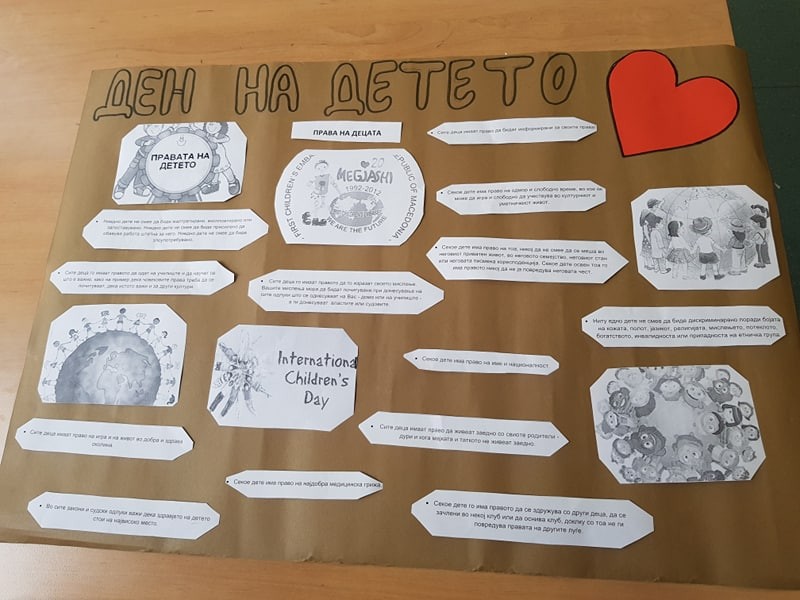 ДЕН НА ДЕТЕТО
ПРАВАТА НА
ДЕТЕТО
ПРАВА НА ДЕЦАТА
Сите деца имаат право да бидат информирани за своите права.
FIRST CHILDREN'S EMBA
REPUBLIC OF MACEDONIA
20
MEGJASHI
1992-2012
WE ARE THE FUTURE
• Ниедно дете не смее да биде малтретирано, експлоатирано или
запоставувано. Ниедно дете не смее да биде присилено да
обавува работа штетна за него. Ниедно дете не смее да биде
злоупотребувано.
Секое дете има право на одмор и слободно време, во кое ќе
може да игра и слободно да учествува во културниот и
уметничкиот живот.
• Секое дете има право на тоа, никој да не смее да се меша во
неговиот приватен живот, во неговото семејство, неговиот стан
или неговата писмена кореспонденција. Секое дете освен тоа го
има правото никој да не ја повредува неговата чест.
• Сите деца го имаат правото да одат на училиште и да научат се
што е важно, како на пример дека човековите права треба да се
почитуваат, дека истото важи и за други култури.
• Сите деца го имаат правото да го изразат своето мислење.
Вашите мислења мора да бидат почитувани при донесување на
сите одлуки што се однесуваат на Вас - дома или на училиште -
а ги донесуваат, властите или судовите.
• Ниту едно дете не смее да биде дискриминирано поради бојата
на кожата, полот, јазикот, религијата, мислењето, потеклото,
богатството, инвалидноста или припадноста на етничка група.
International
Children's
Day
• Секое дете има право на име и националност
• Сите деца имаат право на игра и на живот во добра и здрава
околина.
• Сите деца имаат право да живеат заедно со своите родители -
дури и кога мајката и таткото не живеат заедно.
• Секое дете има право на најдобра медицинска грижа.
• Во сите закони и судски одлуки важи дека здравјето на детето
стои на највисоко место.
• Секое дете го има правото да се здружува со други деца, да се
зачлени во некој клуб или да оснива клуб, доколку со тоа не ги
повредува правата на другите луѓе.